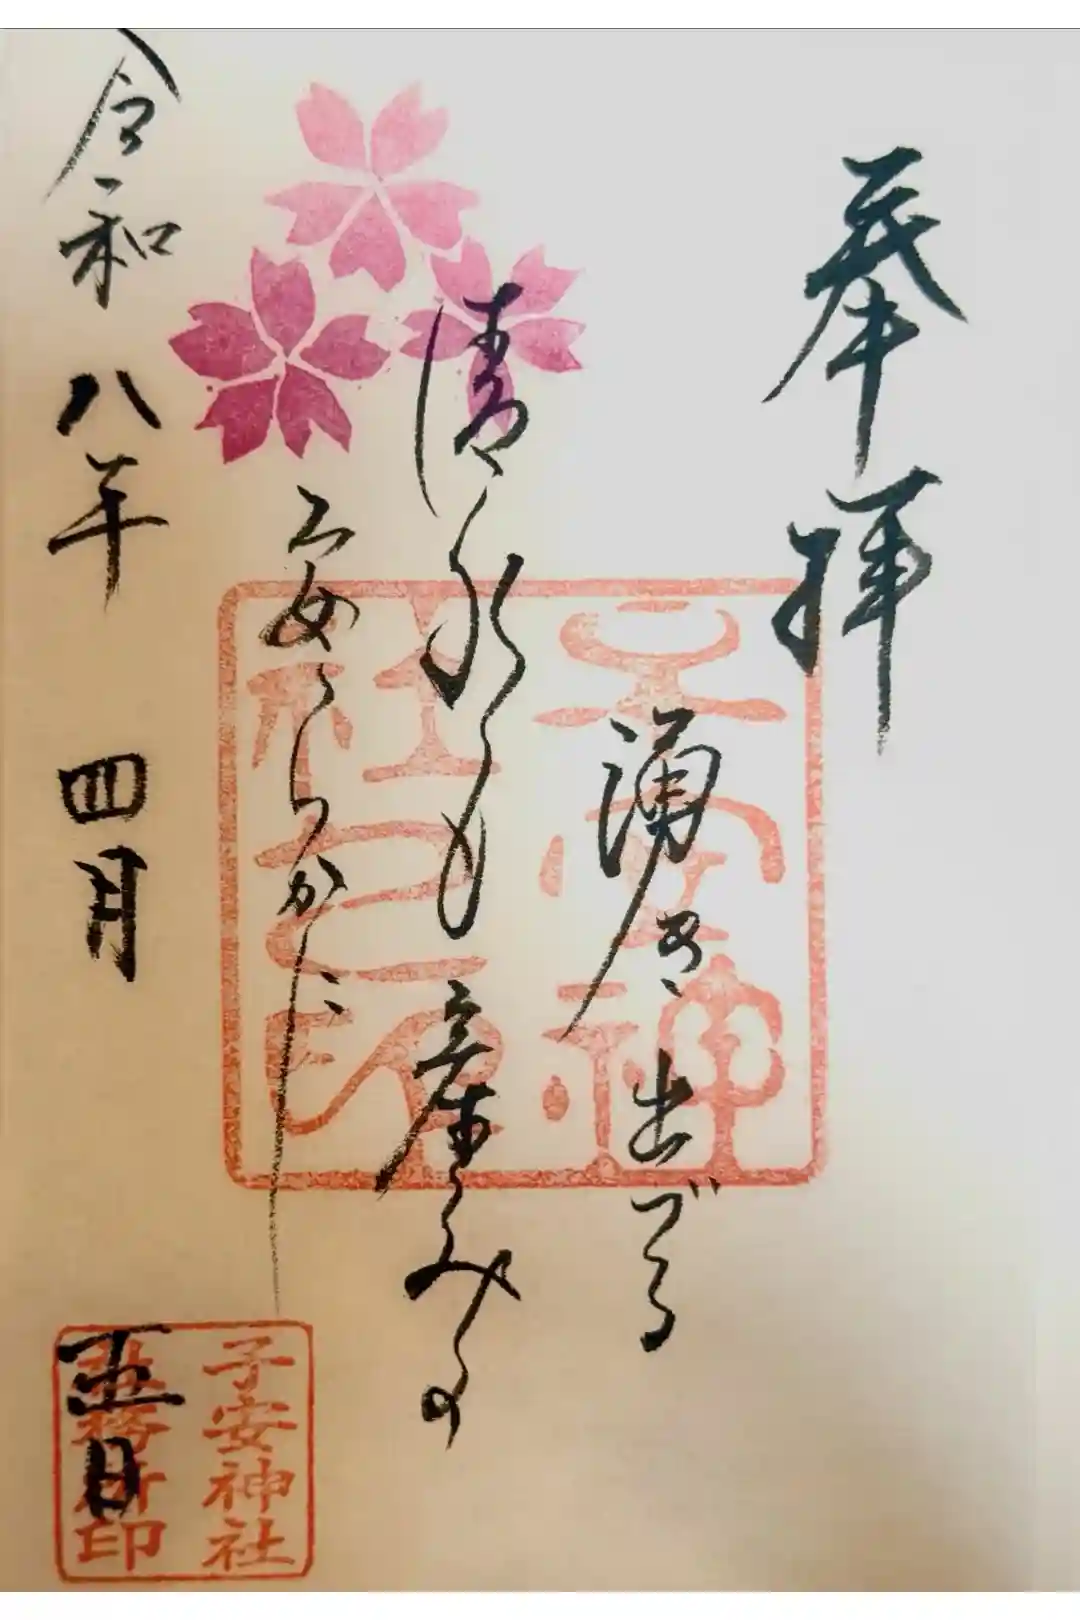 奉拝
湧き出づる
清水も産みの
安らかに
子安神
社之印
令和八年 四月五日
子安神社
社務所印